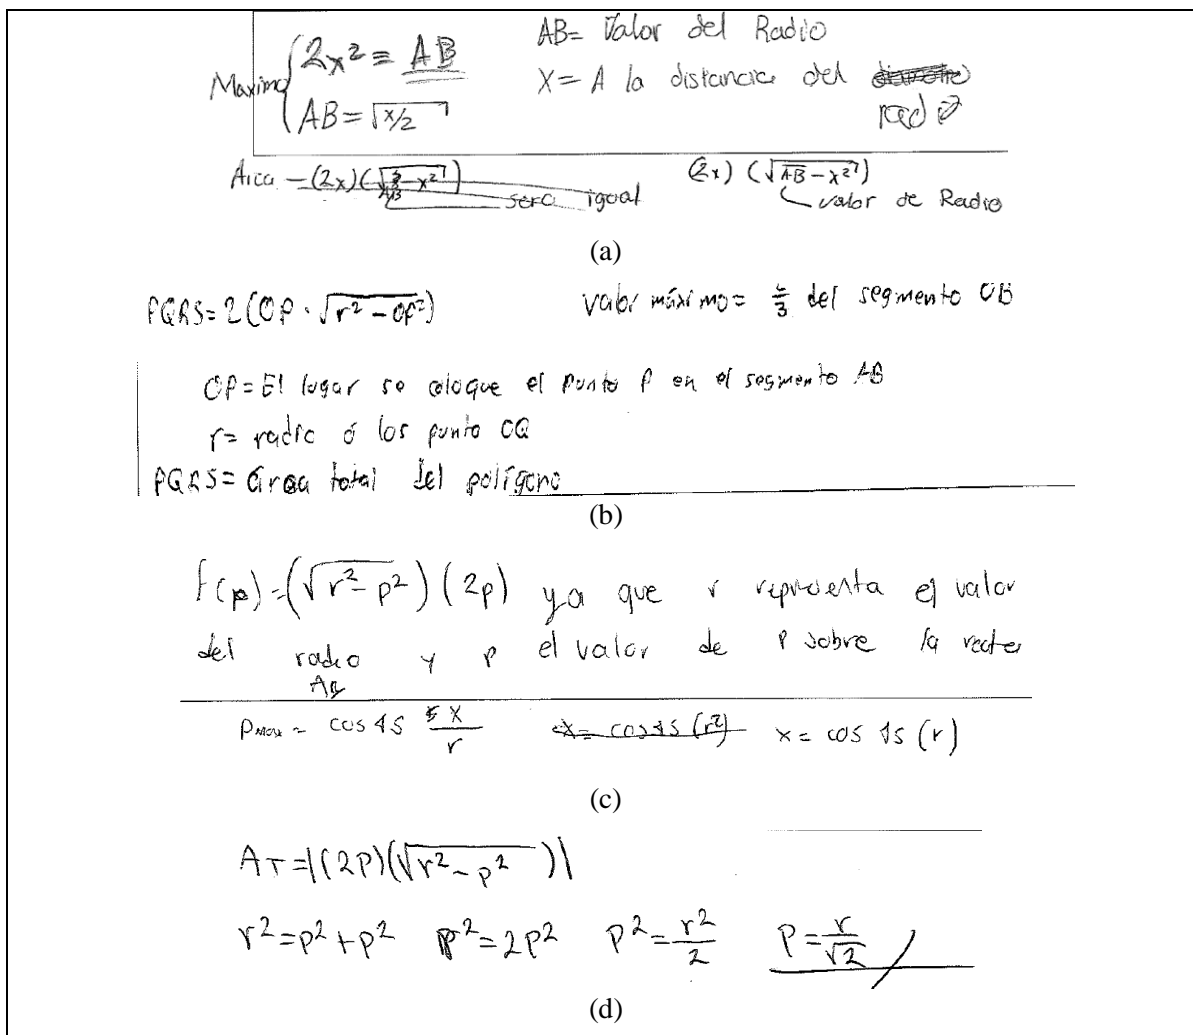 Maximo
2x² = AB
AB = √x/2
AB= Valor del Radio
X = A la distancia del
Area = (2x)(√ - x²)
sera igual
(2x) (√AB - x²)
valor de Radio
(a)
PQRS = 2(OP · √r² - OP²)
valor máximo = del segmento OB
OP = El lugar se coloque el punto P en el segmento AB
r = radio ó los punto OQ
PQRS = área total del polígono
(b)
f(p) = (√r² - p²) (2p) ya que r representa el valor
del radio y P el valor de P sobre la recta
AB
Pmax = cos 45 x/r x = cos 45 (r²) x = cos 45 (r)
(c)
AT = |(2P)(√r² - p²)|
r² = p² + p² r² = 2p² p² = r²/2 P = r/√2
(d)